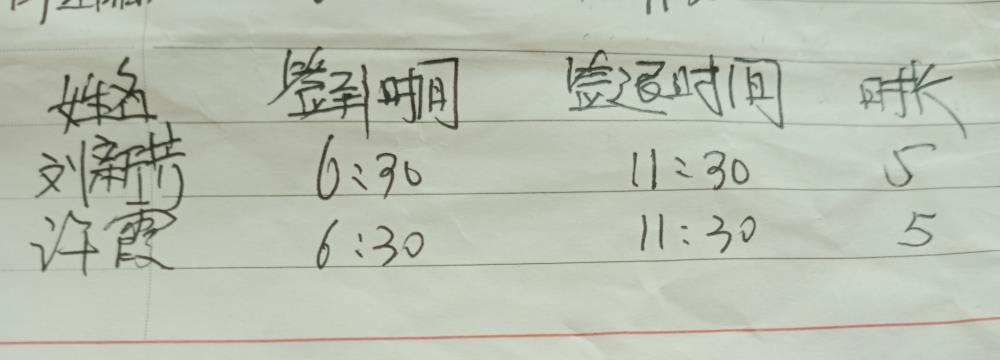 姓名 签到时间 签退时间 时长
刘新芳 6:30 11:30 5
许霞 6:30 11:30 5